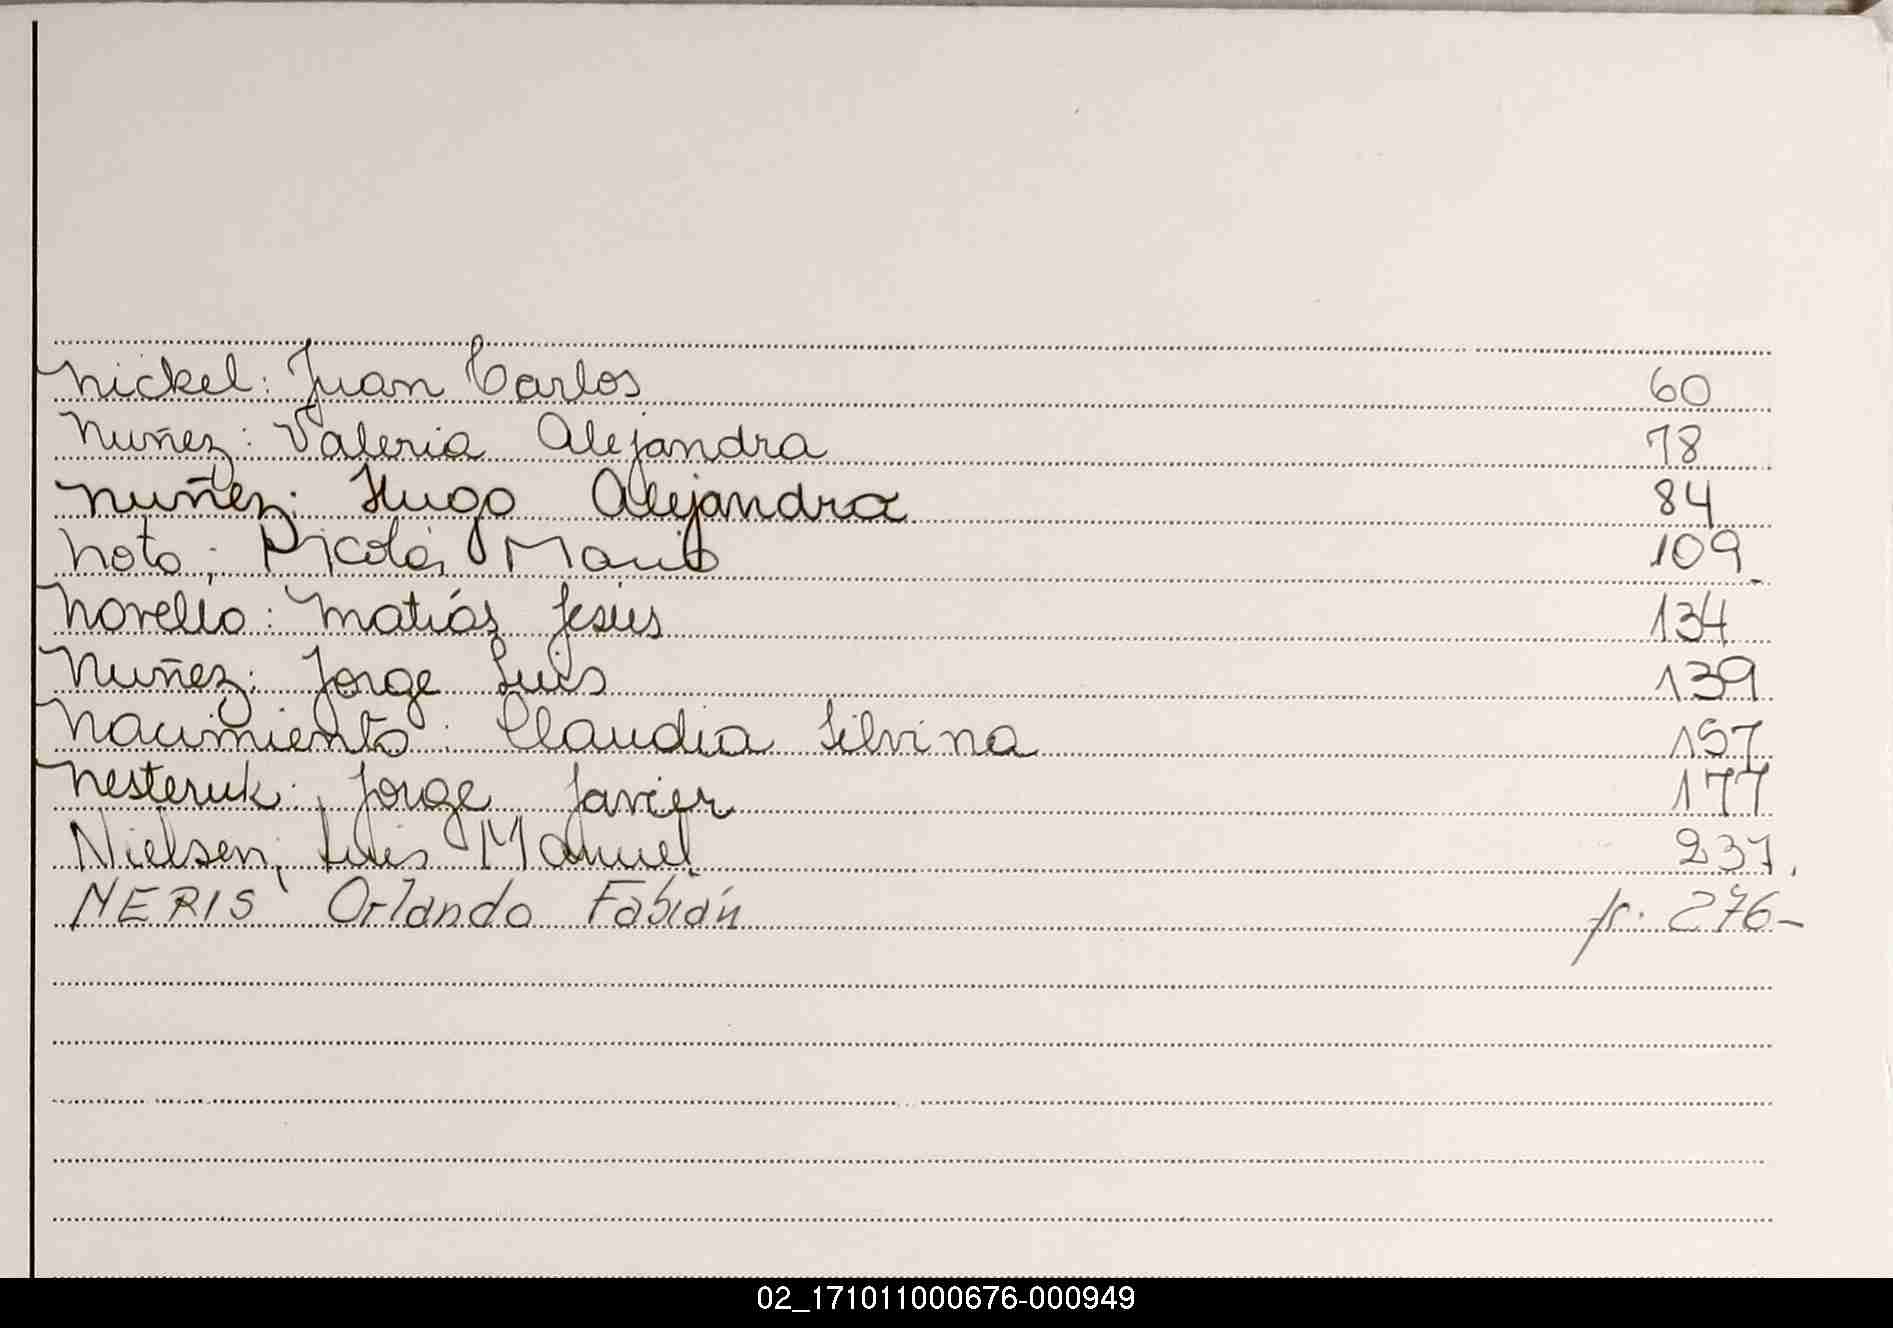 Nickel: Juan Carlos 60
Nuñez: Valeria Alejandra 78
Nuñez: Hugo Alejandra 84
Noto; Nicolás Mario 109
Novello: Matías Jesús 134
Nuñez: Jorge Luis 139
Nacimiento: Claudia Silvina 157
Nesteruk: Jorge Javier 177
Nielsen, Luis Manuel 237.
NERIS Orlando Fabián 276-
02_171011000676-000949